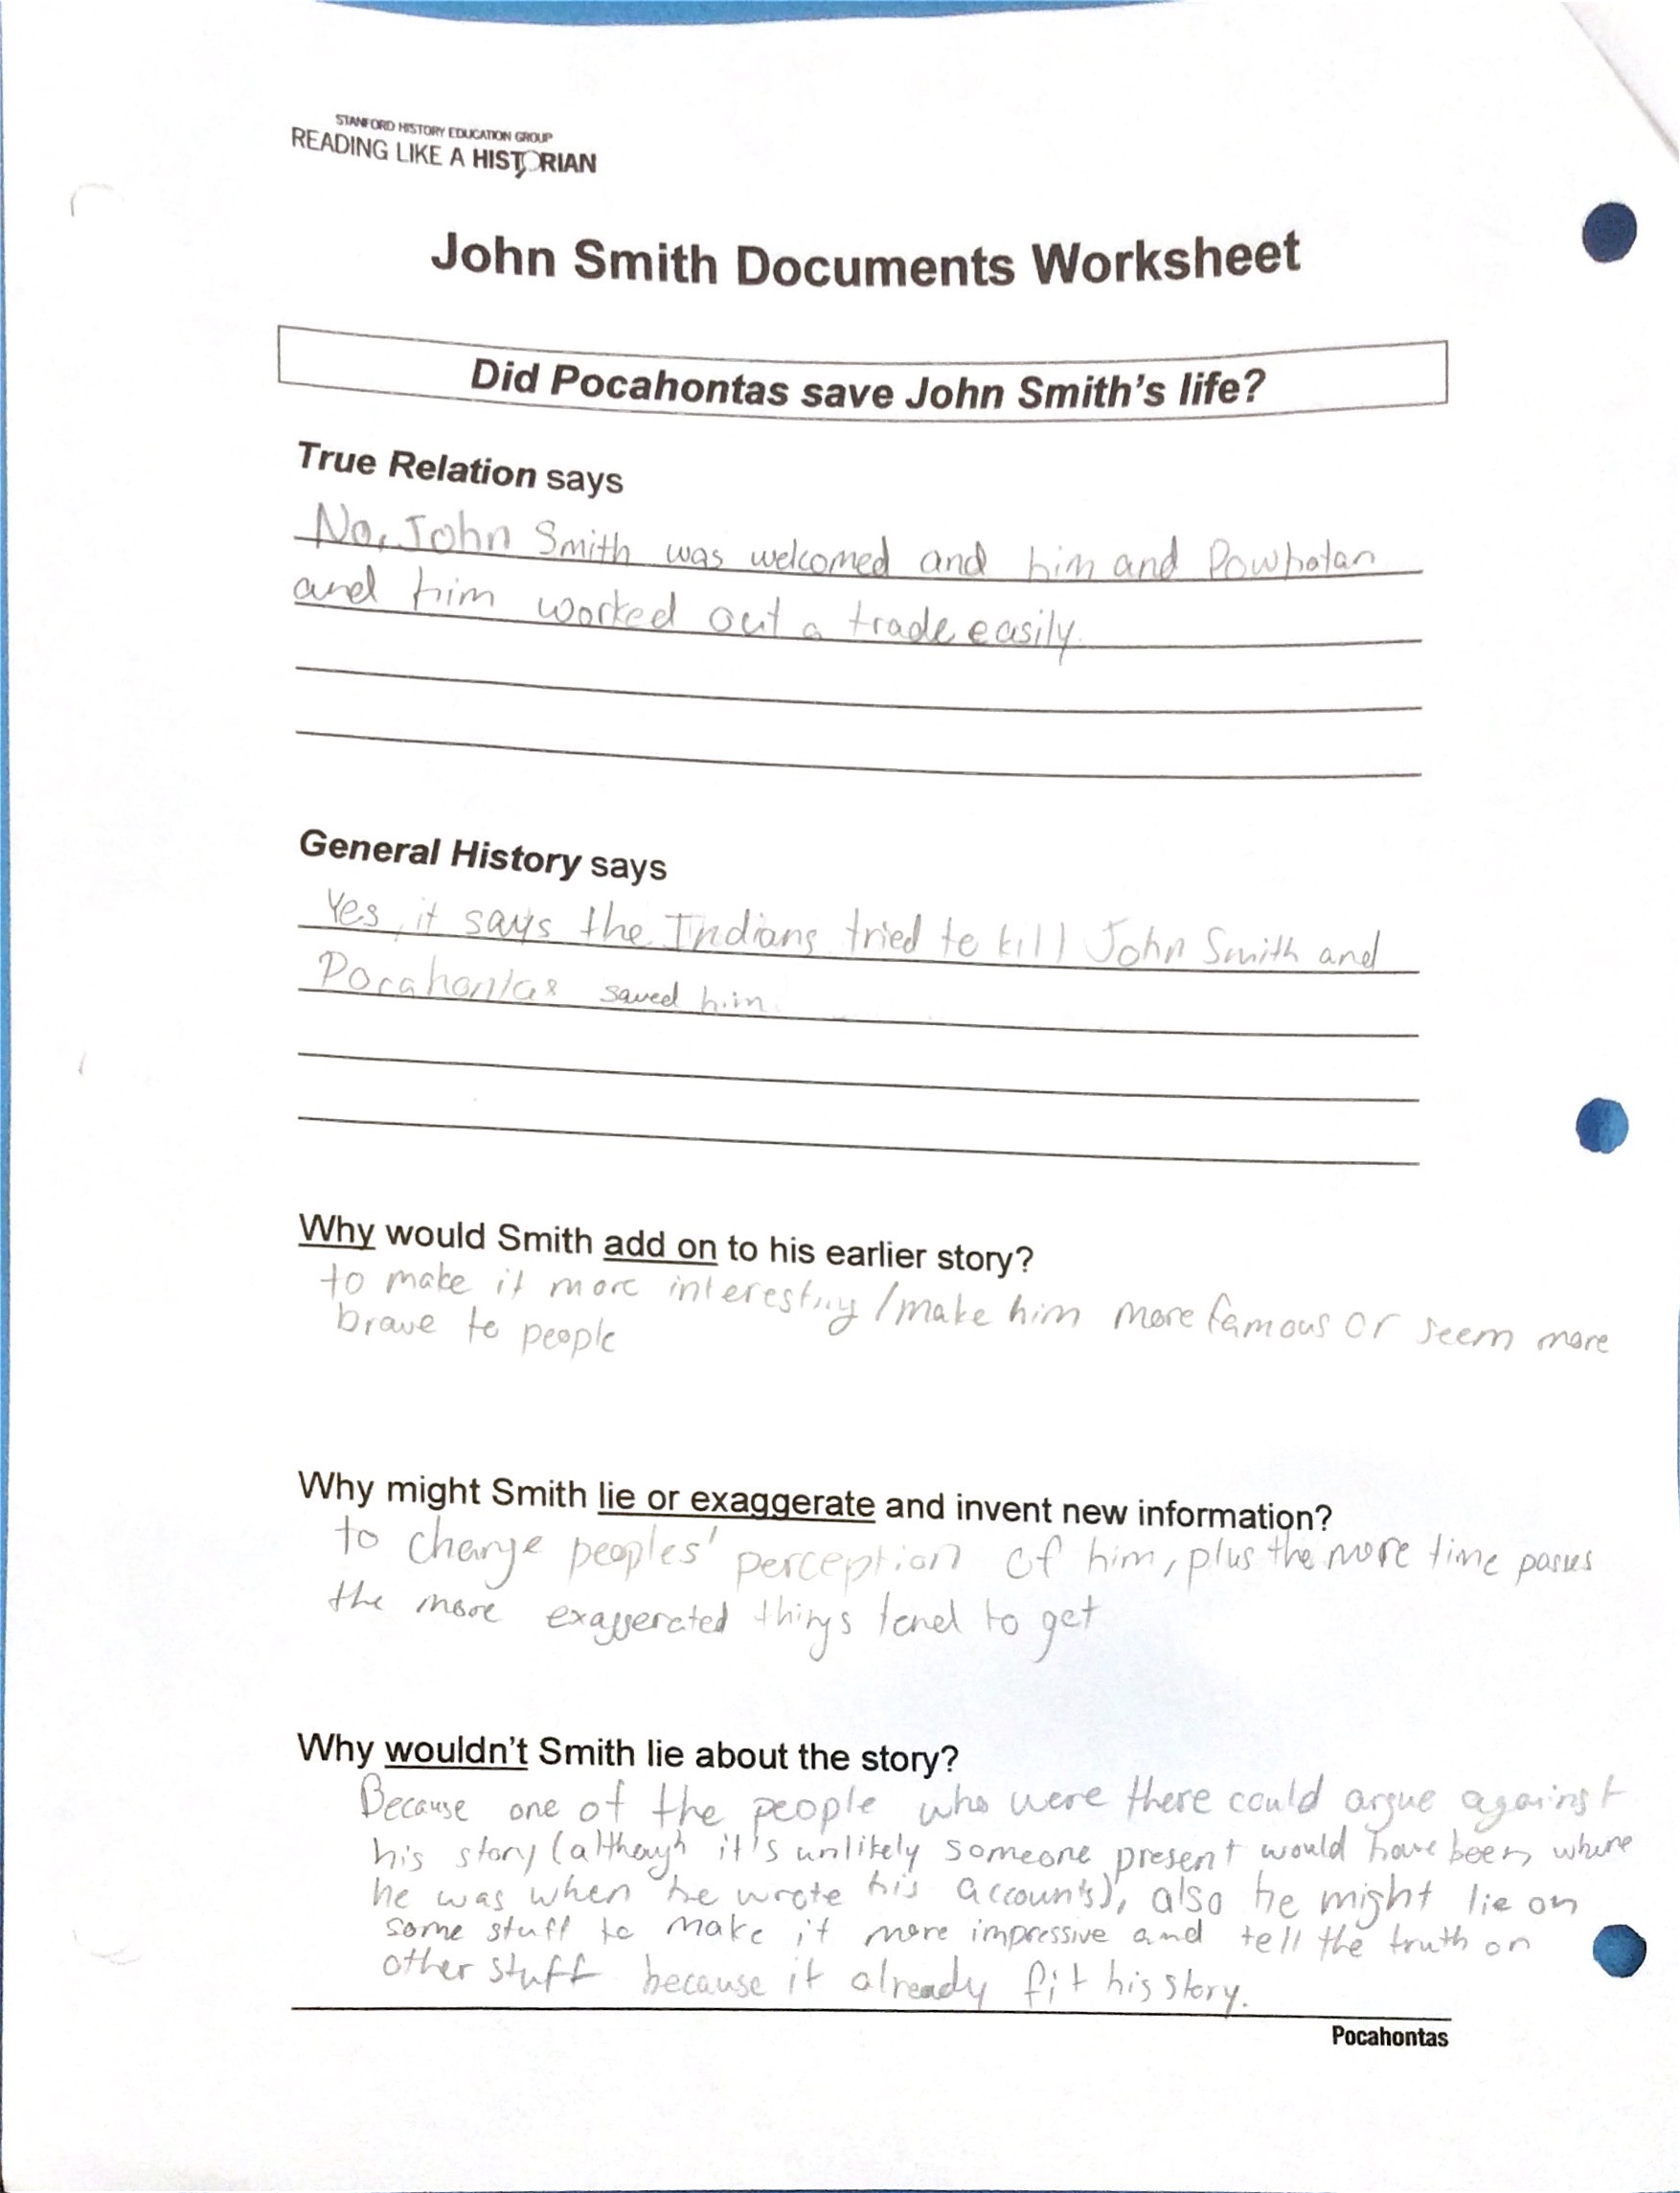 STANFORD HISTORY EDUCATION GROUP
READING LIKE A HISTORIAN
John Smith Documents Worksheet
Did Pocahontas save John Smith's life?
True Relation says
No, John Smith was welcomed and him and Powhatan
and him worked out a trade easily.
General History says
Yes, it says the Indians tried to kill John Smith and
Pocahontas saved him.
Why would Smith add on to his earlier story?
to make it more interesting / make him more famous or seem more
brave to people
Why might Smith lie or exaggerate and invent new information?
to change peoples' perception of him, plus the more time passes
the more exaggerated things tend to get
Why wouldn't Smith lie about the story?
Because one of the people who were there could argue against
his story (although it's unlikely someone present would have been where
he was when he wrote his accounts), also he might lie on
some stuff to make it more impressive and tell the truth on
other stuff because it already fit his story.
Pocahontas